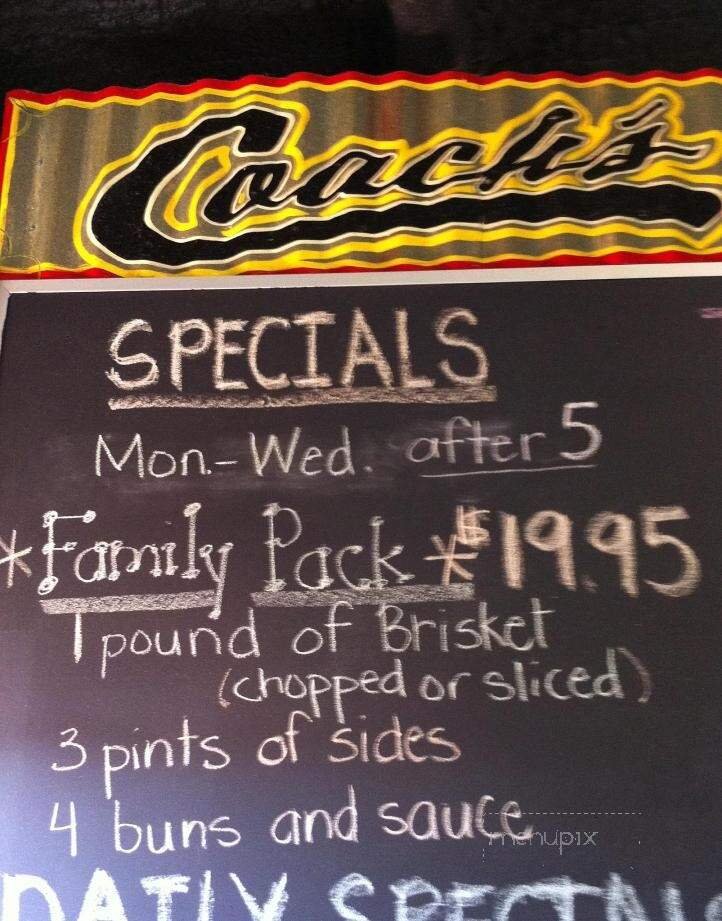 Coach's
SPECIALS
Mon.-Wed. after 5
*Family Pack* $19.95
1 pound of Brisket
(chopped or sliced)
3 pints of sides
4 buns and sauce
menupix
DAILY SPECIALS